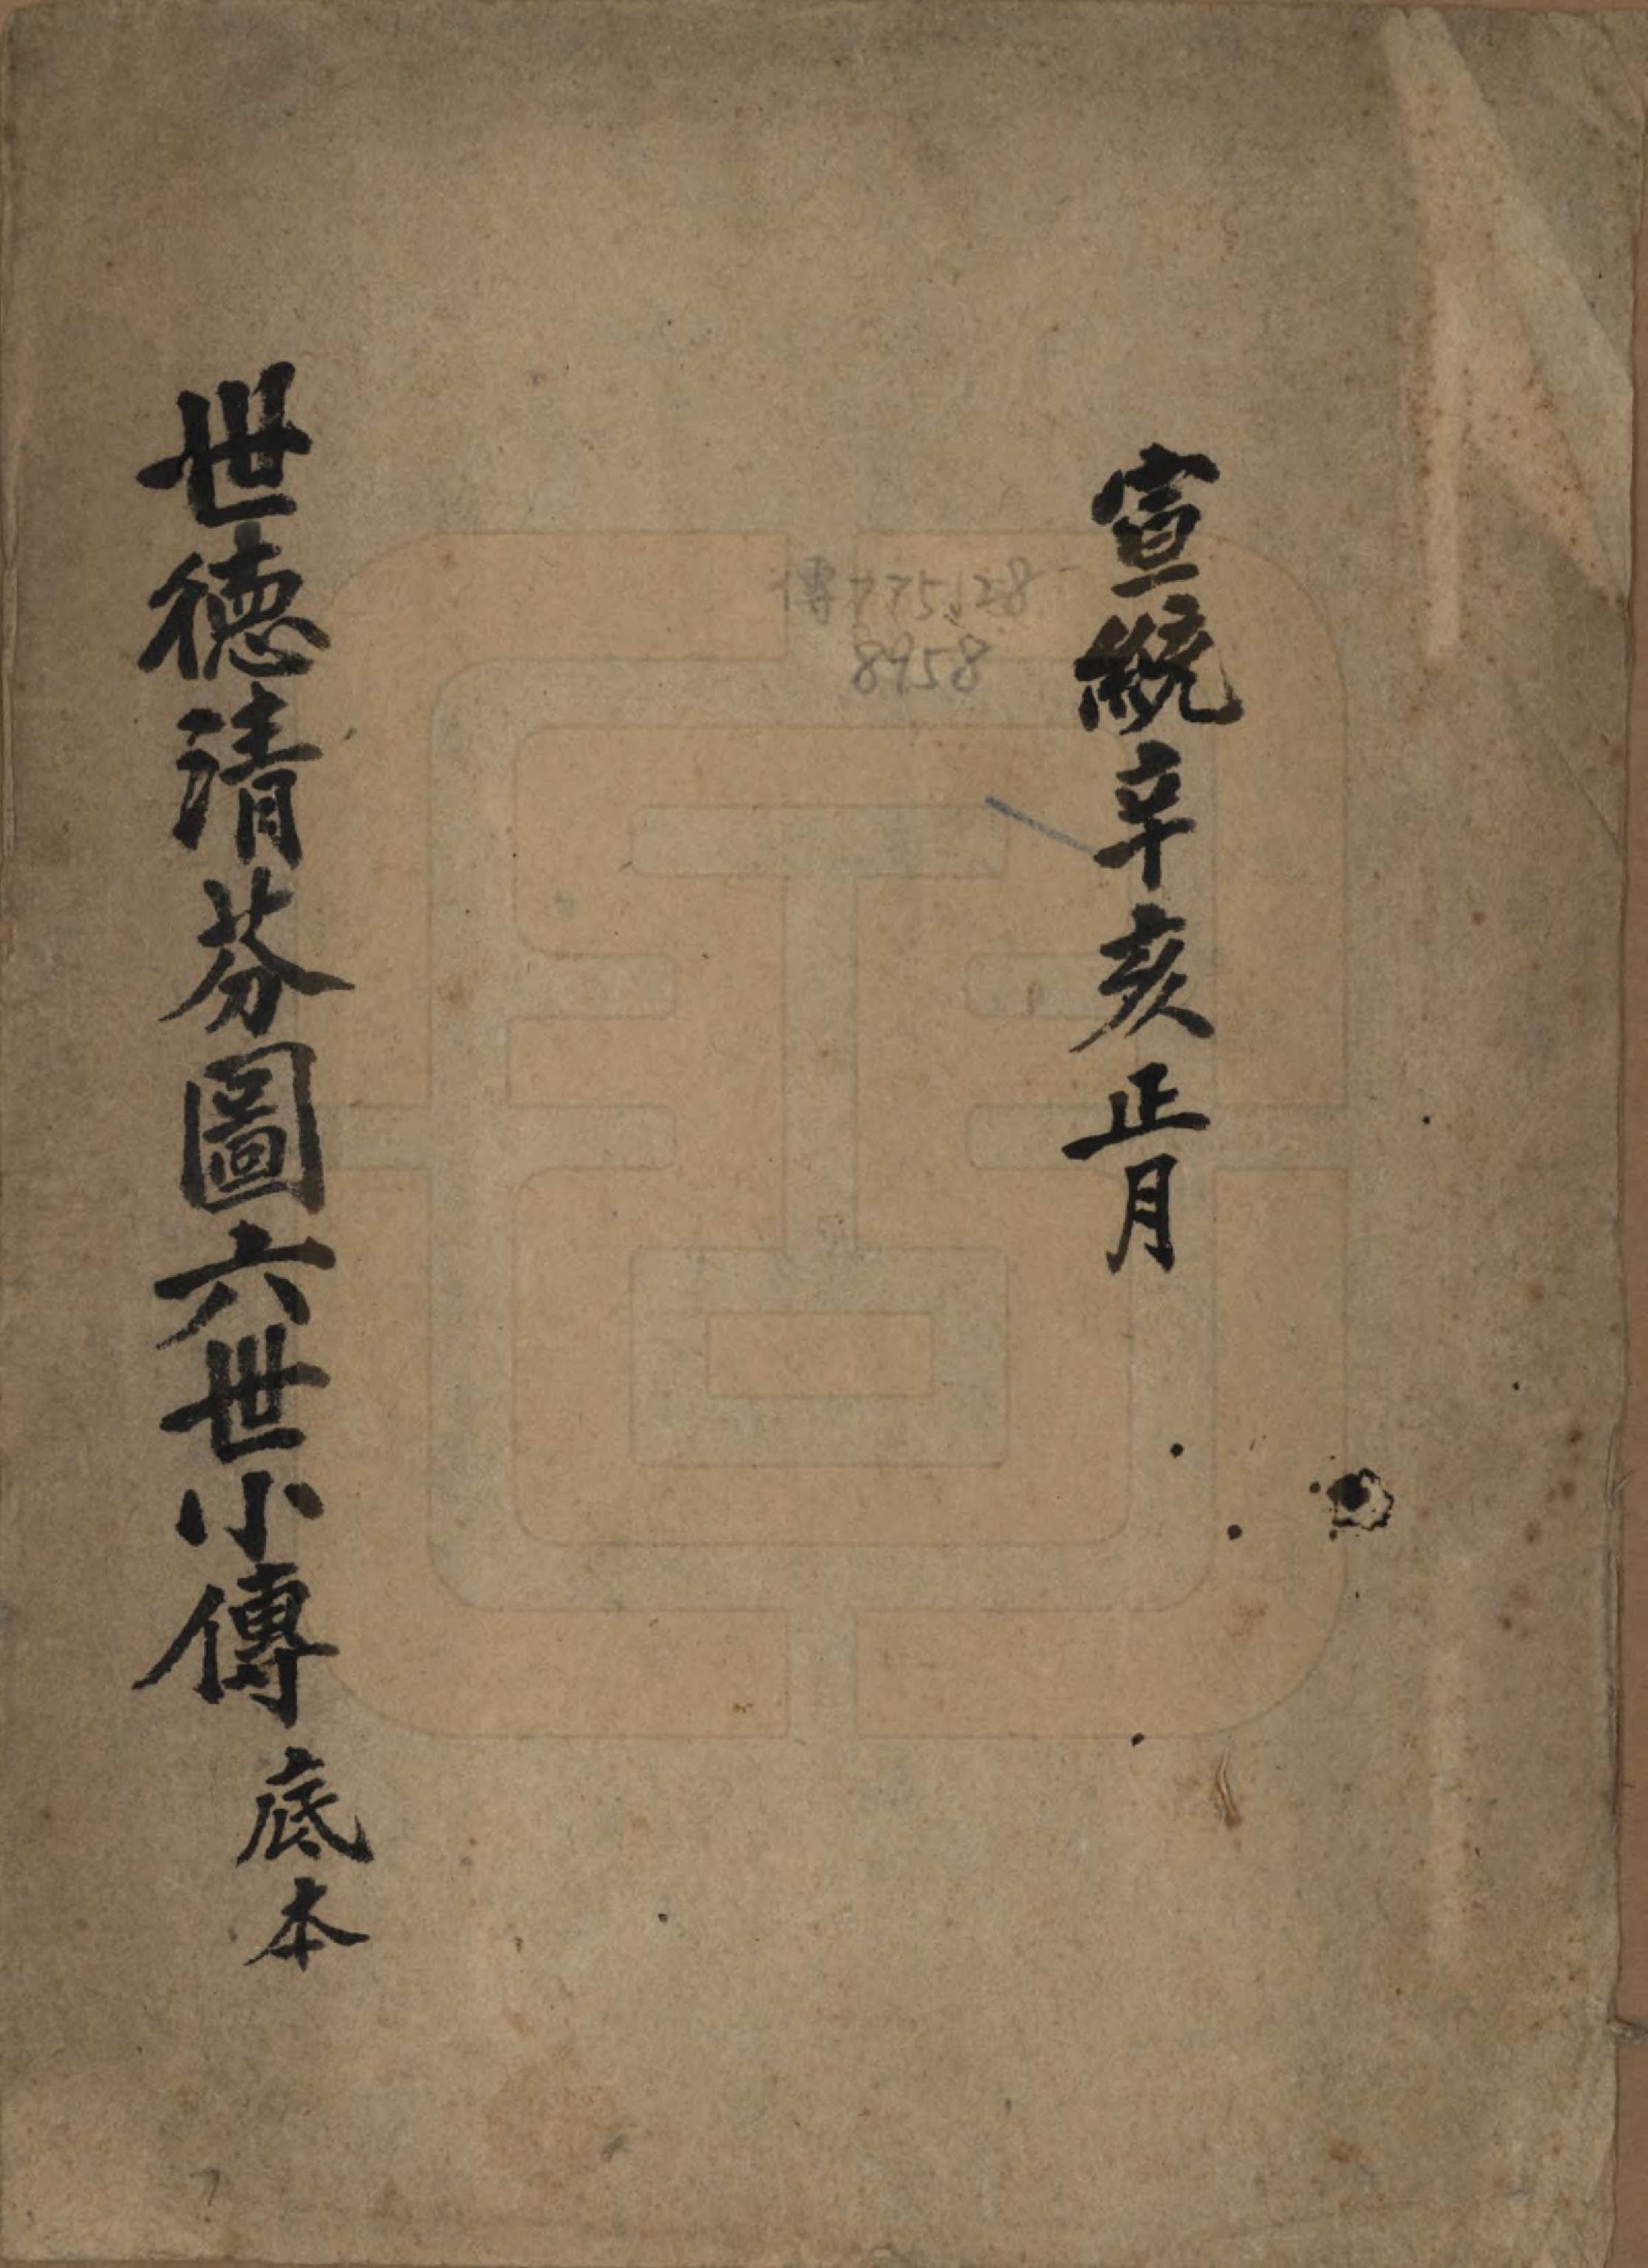 宣統辛亥正月
傳775.128
8958
世德清芬圖六世小傳 底本